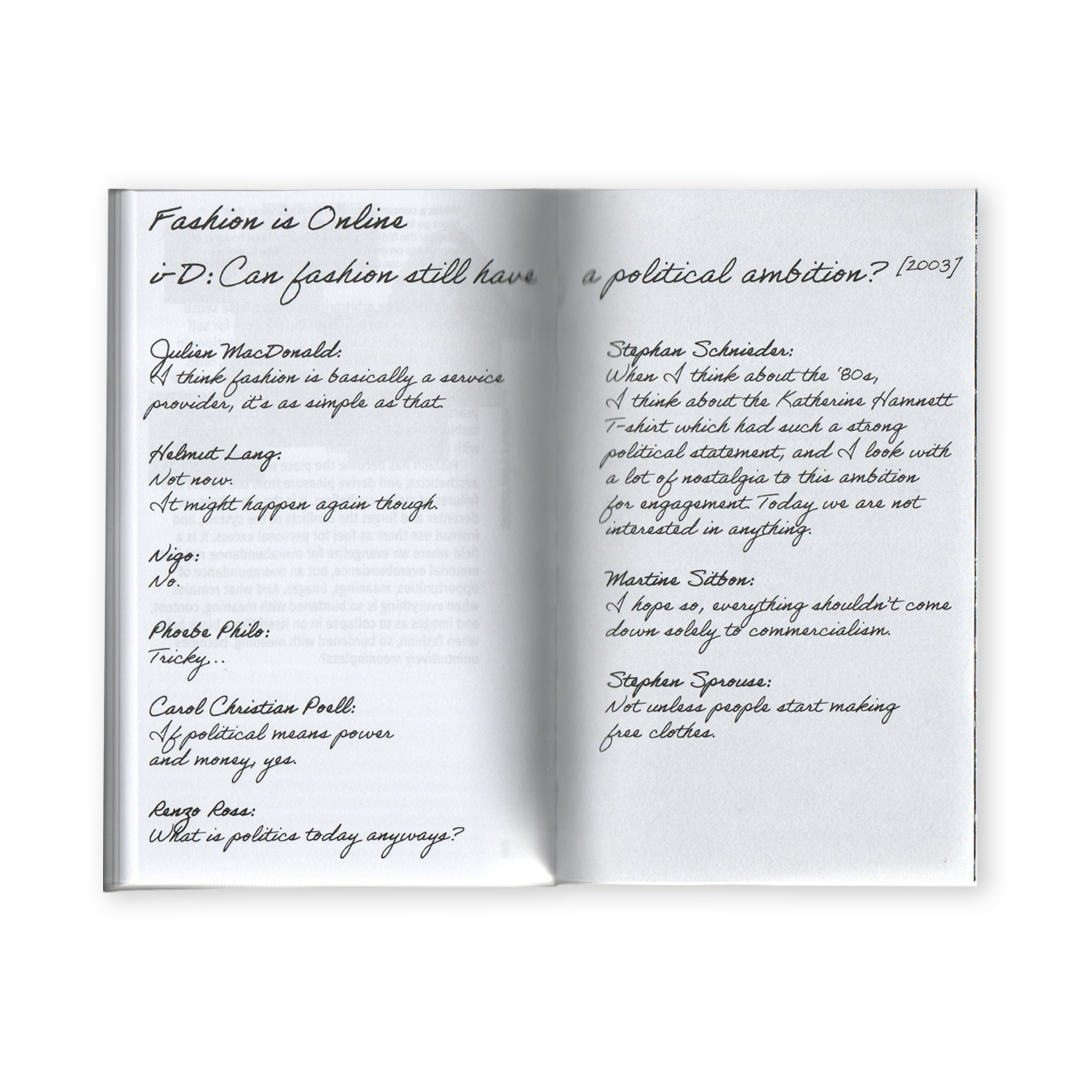 Fashion is Online
i-D: Can fashion still have a political ambition? [2003]
Julien MacDonald:
I think fashion is basically a service
provider, it's as simple as that.
Helmut Lang:
Not now.
It might happen again though.
Nigo:
No.
Phoebe Philo:
Tricky...
Carol Christian Poell:
If political means power
and money, yes.
Renzo Ross:
What is politics today anyways?
Stephan Schnieder:
When I think about the '80s,
I think about the Katherine Hamnett
T-shirt which had such a strong
political statement, and I look with
a lot of nostalgia to this ambition
for engagement. Today we are not
interested in anything.
Martine Sitbon:
I hope so, everything shouldn't come
down solely to commercialism.
Stephen Sprouse:
Not unless people start making
free clothes.